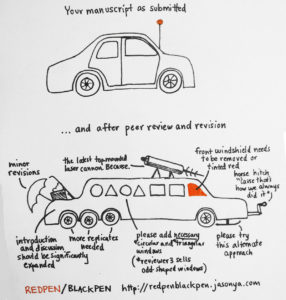 Your manuscript as submitted
... and after peer review and revision
minor
revisions
the latest top-mounted
laser cannon. Because.
front windshield needs
to be removed or
tinted red
horse hitch
"cause that's
how we always
did it"
introduction
and discussion
should be significantly
expanded
more replicates
needed
please add necessary
circular and triangular
windows
(*reviewer 3 sells
odd shaped windows)
please try
this alternate
approach
REDPEN/BLACKPEN http://redpenblackpen.jasonya.com